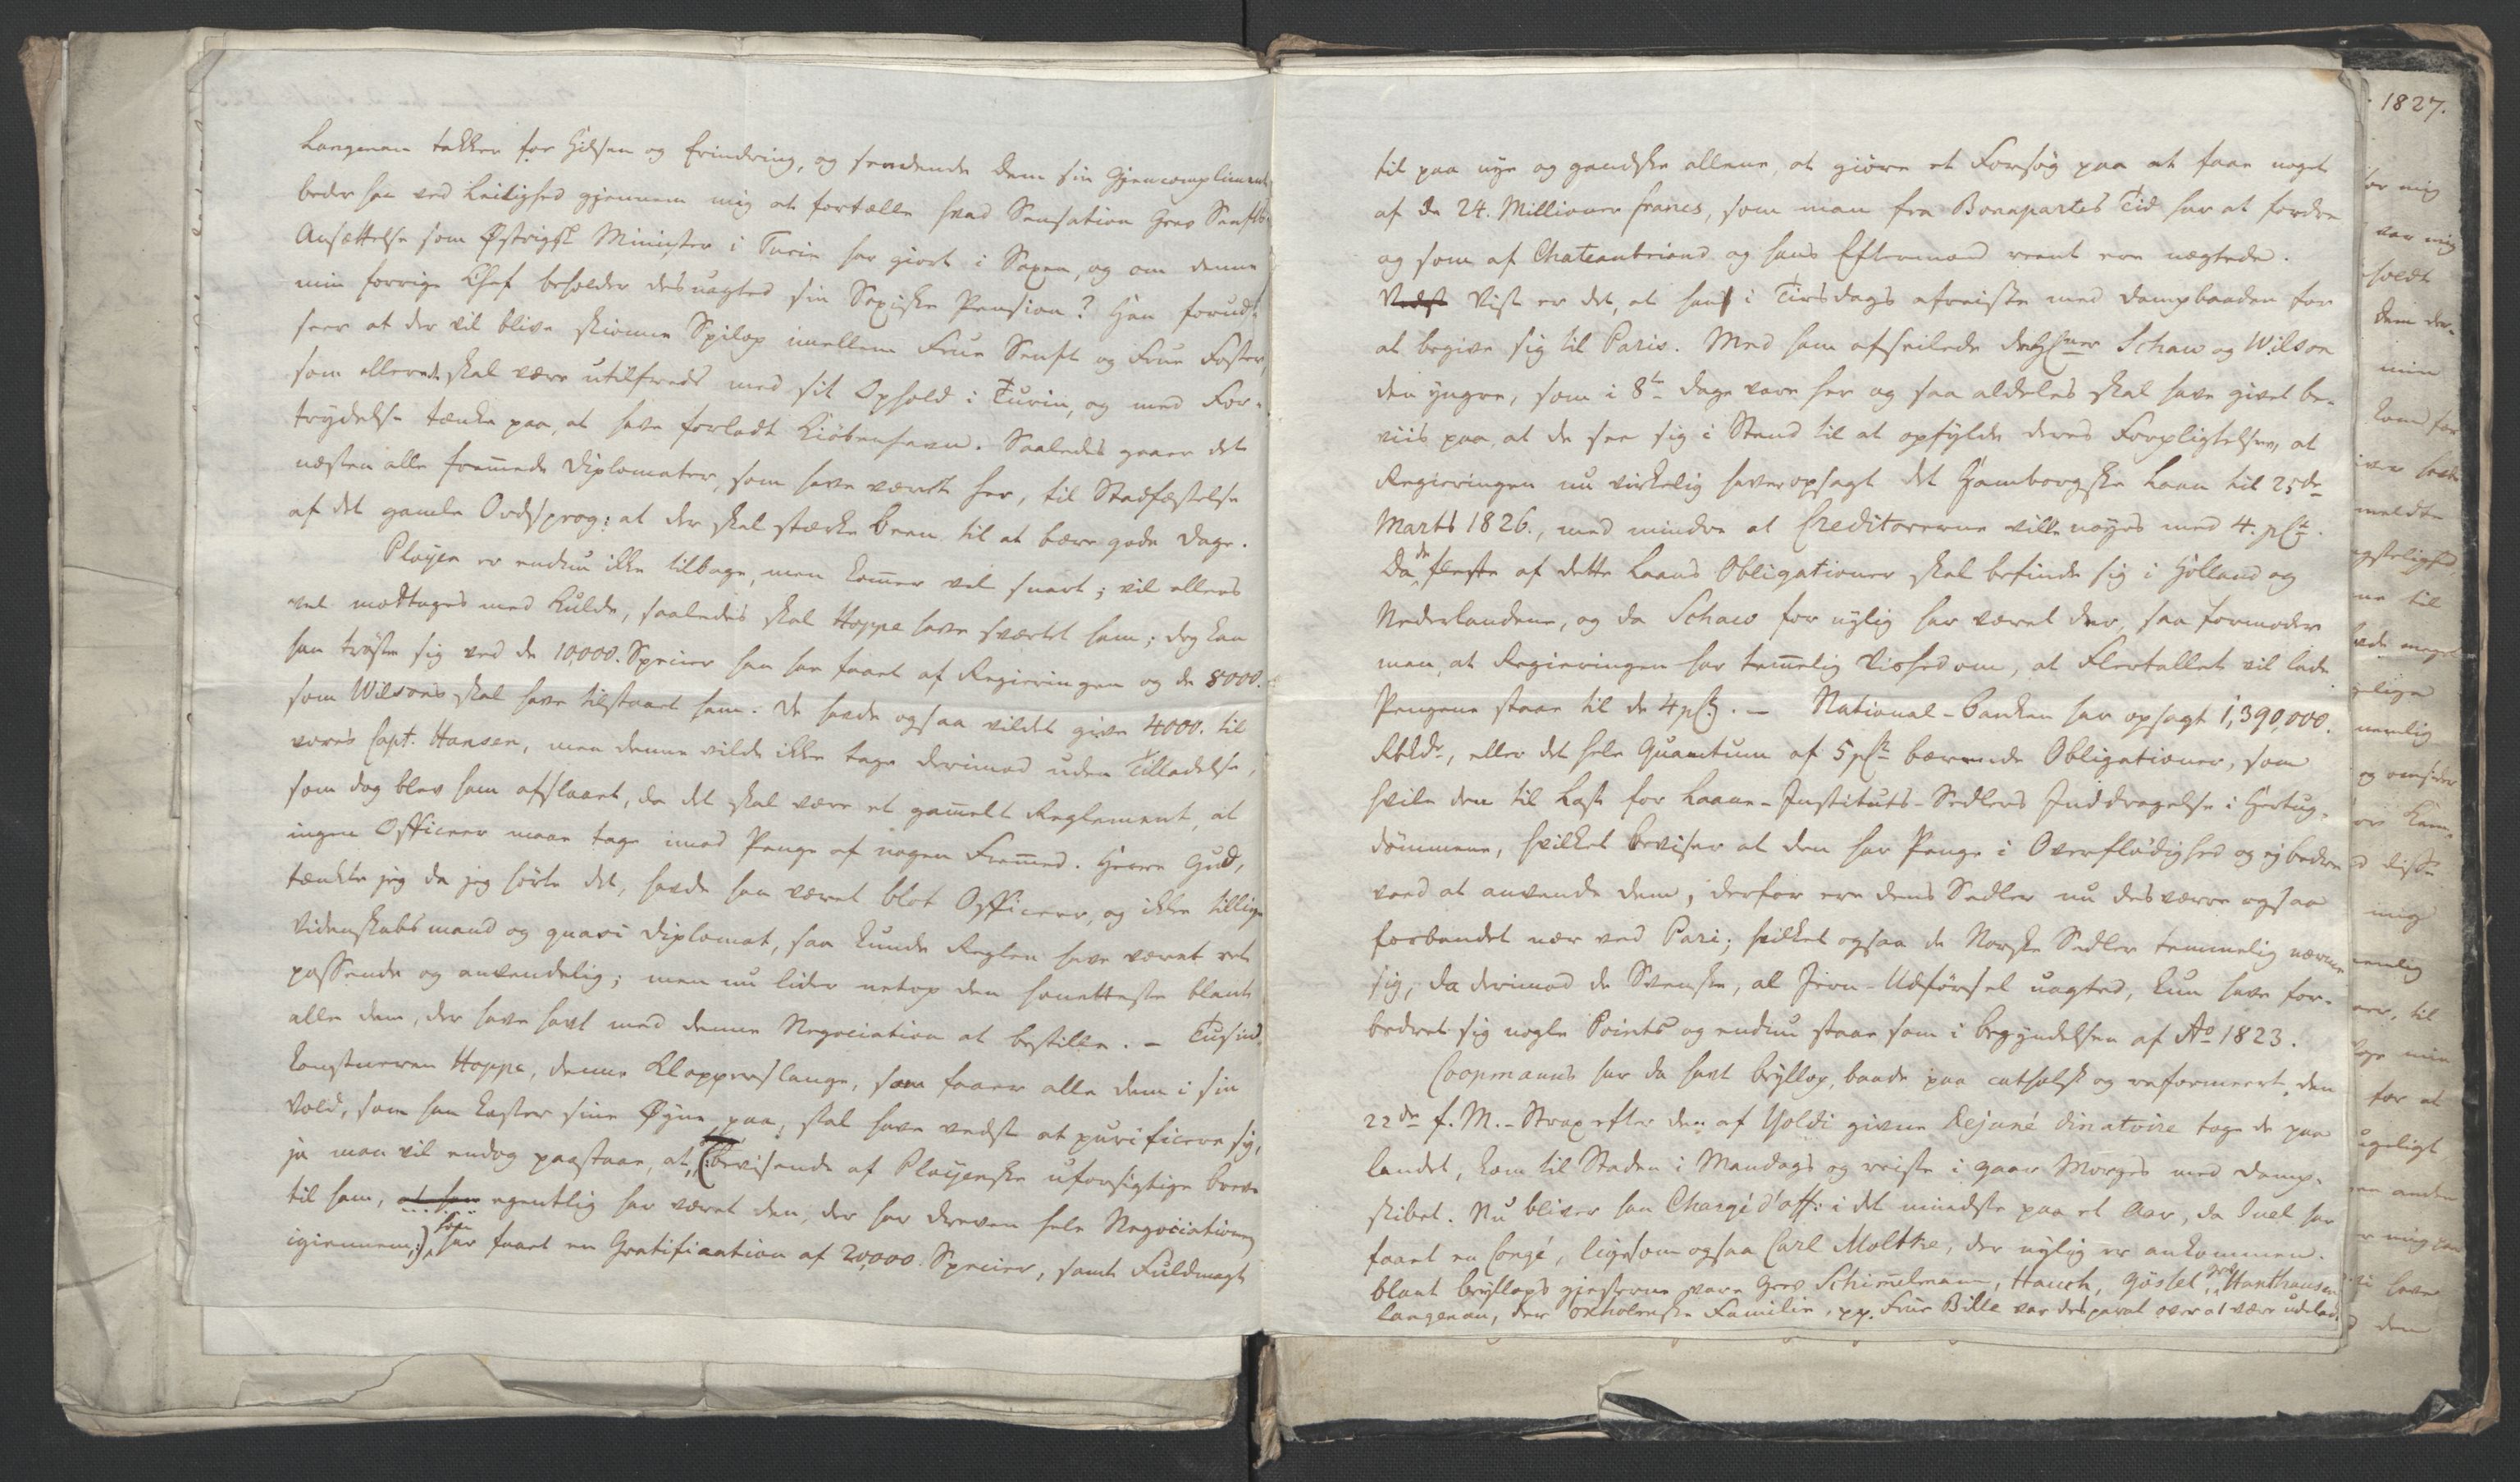 Langenau takker for Hilsen og Erindring, og sendende Dem sin Gjencompliment
beder han ved Leilighed gjennem mig at fortælle hvad Sensation Grev Senfts
Ansættelse som Østrigsk Minister i Turin har giort i Saxen, og om denne
min forrige Chef beholder desuagted sin Saxiske Pension? Han forud-
seer at der vil blive skiønne Spilop imellem Frue Senft og Frue Foster,
som allerede skal være utilfreds med sit Ophold i Turin, og med For-
trydelse tænke paa, at have forladt Kiöbenhavn. Saaledes gaaer det
næsten alle fremede Diplomater, som have været her, til Stadfæstelse
af det gamle Ordsprog: at der skal stærke Been til at bære gode Dage.
Ployen er endnu ikke tilbage, men komer vel snart; vil ellers
vel modtages med Kulde, saaledes skal Hoppe have sværtet ham; dog kan
han tröste sig ved de 10,000. Specier han har faaet af Regieringen og de 8000.
som Wilsons skal have tilstaaet ham. De havde ogsaa vildet give 4000. til
vores Capt. Hansen, men denne vilde ikke tage derimod uden Tilladelse,
som dog blev ham afslaaet, da det skal være et gamelt Reglement, at
ingen Officeer maae tage imod Penge af nogen Fremed. Herre Gud,
tænkte jeg da jeg hörte det, havde han været blot Officeer, og ikke tillige
Videnskabsmand og quasi Diplomat, saa kunde Reglen have været ret
passende og anvendelig; men nu lider netop den honetteste blant
alle dem, der have havt med denne Negociation at bestille. – Tusind-
konstneren Hoppe, denne Klapperslange, som faaer alle dem i sin
Vold, som han kaster sine Øyne paa, skal have vedst at purificere sig,
ja man vil endog paastaae, at, (:bevisende af Ployenske uforsigtige Breve
til ham, at han egentlig har været den, der har dreven hele Negociationen
igiennem,:) han har faaet en Gratification af 20,000. Specier, samt Fuldmagt
til paa nye og gandske allene, at giøre et Forsög paa at faae noget
af de 24. Millioner francs, som man fra Bonapartes Tid har at fordre
og som af Chateaubriand og hans Eftermand reent ere nægtede.
Vedst Vist er det, at han i Tirsdags afreiste med Dampbaaden for
at begive sig til Paris. Med ham afseilede Schaw og Wilson
den yngre, som i 8te Dage vare her og saa aldeles skal have givet be-
viis paa, at de see sig i Stand til at opfylde deres Forpligtelser, at
Regieringen nu virkelig haver opsagt det Hamborgske Laan til 25de
Marts 1826., med mindre at Creditorerne ville nöyes med 4. pCt.
Da de fleste af dette Laans Obligationer skal befinde sig i Holland og
Nederlandene, og da Schaw for nylig har været der, saa formoder
man, at Regieringen har temelig Vished om, at Flertallet vil lade
Pengene staae til de 4 pCt. – National-Banken har opsagt 1,390,000.
Rbdr., eller det hele Quantum af 5 pCt bærende Obligationer, som
hvile den til Last for Laane-Instituts-Sedlers Inddragelse i Hertug-
dömmene, hvilket beviser at den har Penge i Overflödighed og ej bedre
veed at anvende dem; derfor ere dens Sedler nu desværre ogsaa
forbandet nær ved Pari; hvilket ogsaa de Norske Sedler temmelig nærme
sig, da derimod de Svenske, al Jern-Udförsel uagted, kun have for-
bedret sig nogle Points og endnu staae som i Begyndelsen af Ao 1823.
Coopmanns har da havt Bryllup, baade paa catholsk og reformeert, den
22de f. M. – Strax efter den af Yoldi givne Dejuné dinatoire toge de paa
Landet, kom til Staden i Mandags og reiste i gaar Morges med Damp-
skibet. Nu bliver han Chargé d'aff: i det mindste paa et Aar, da Juel har
faaet en Congé, ligesom ogsaa Carl Moltke, der nylig er ankommen.
Blant Bryllups gjesterne vare Grev Schimelmann, Hauch, Gösset, Haxthausen
Langenau, den Oxholmske Familie, pp. Frue Bille var desperat over at være udeladt
1827.
for mig
var mig
holdt
Dem der-
min
kom for
meldte
til
disse
mig
til
min
for at
anden
have
den